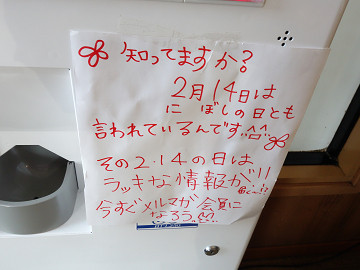 知ってますか?
2月14日は
にぼしの日とも
言われているんです!!^^
その2.14の日は
ラッキな情報が!!
今すぐメルマガ会員に
なろう